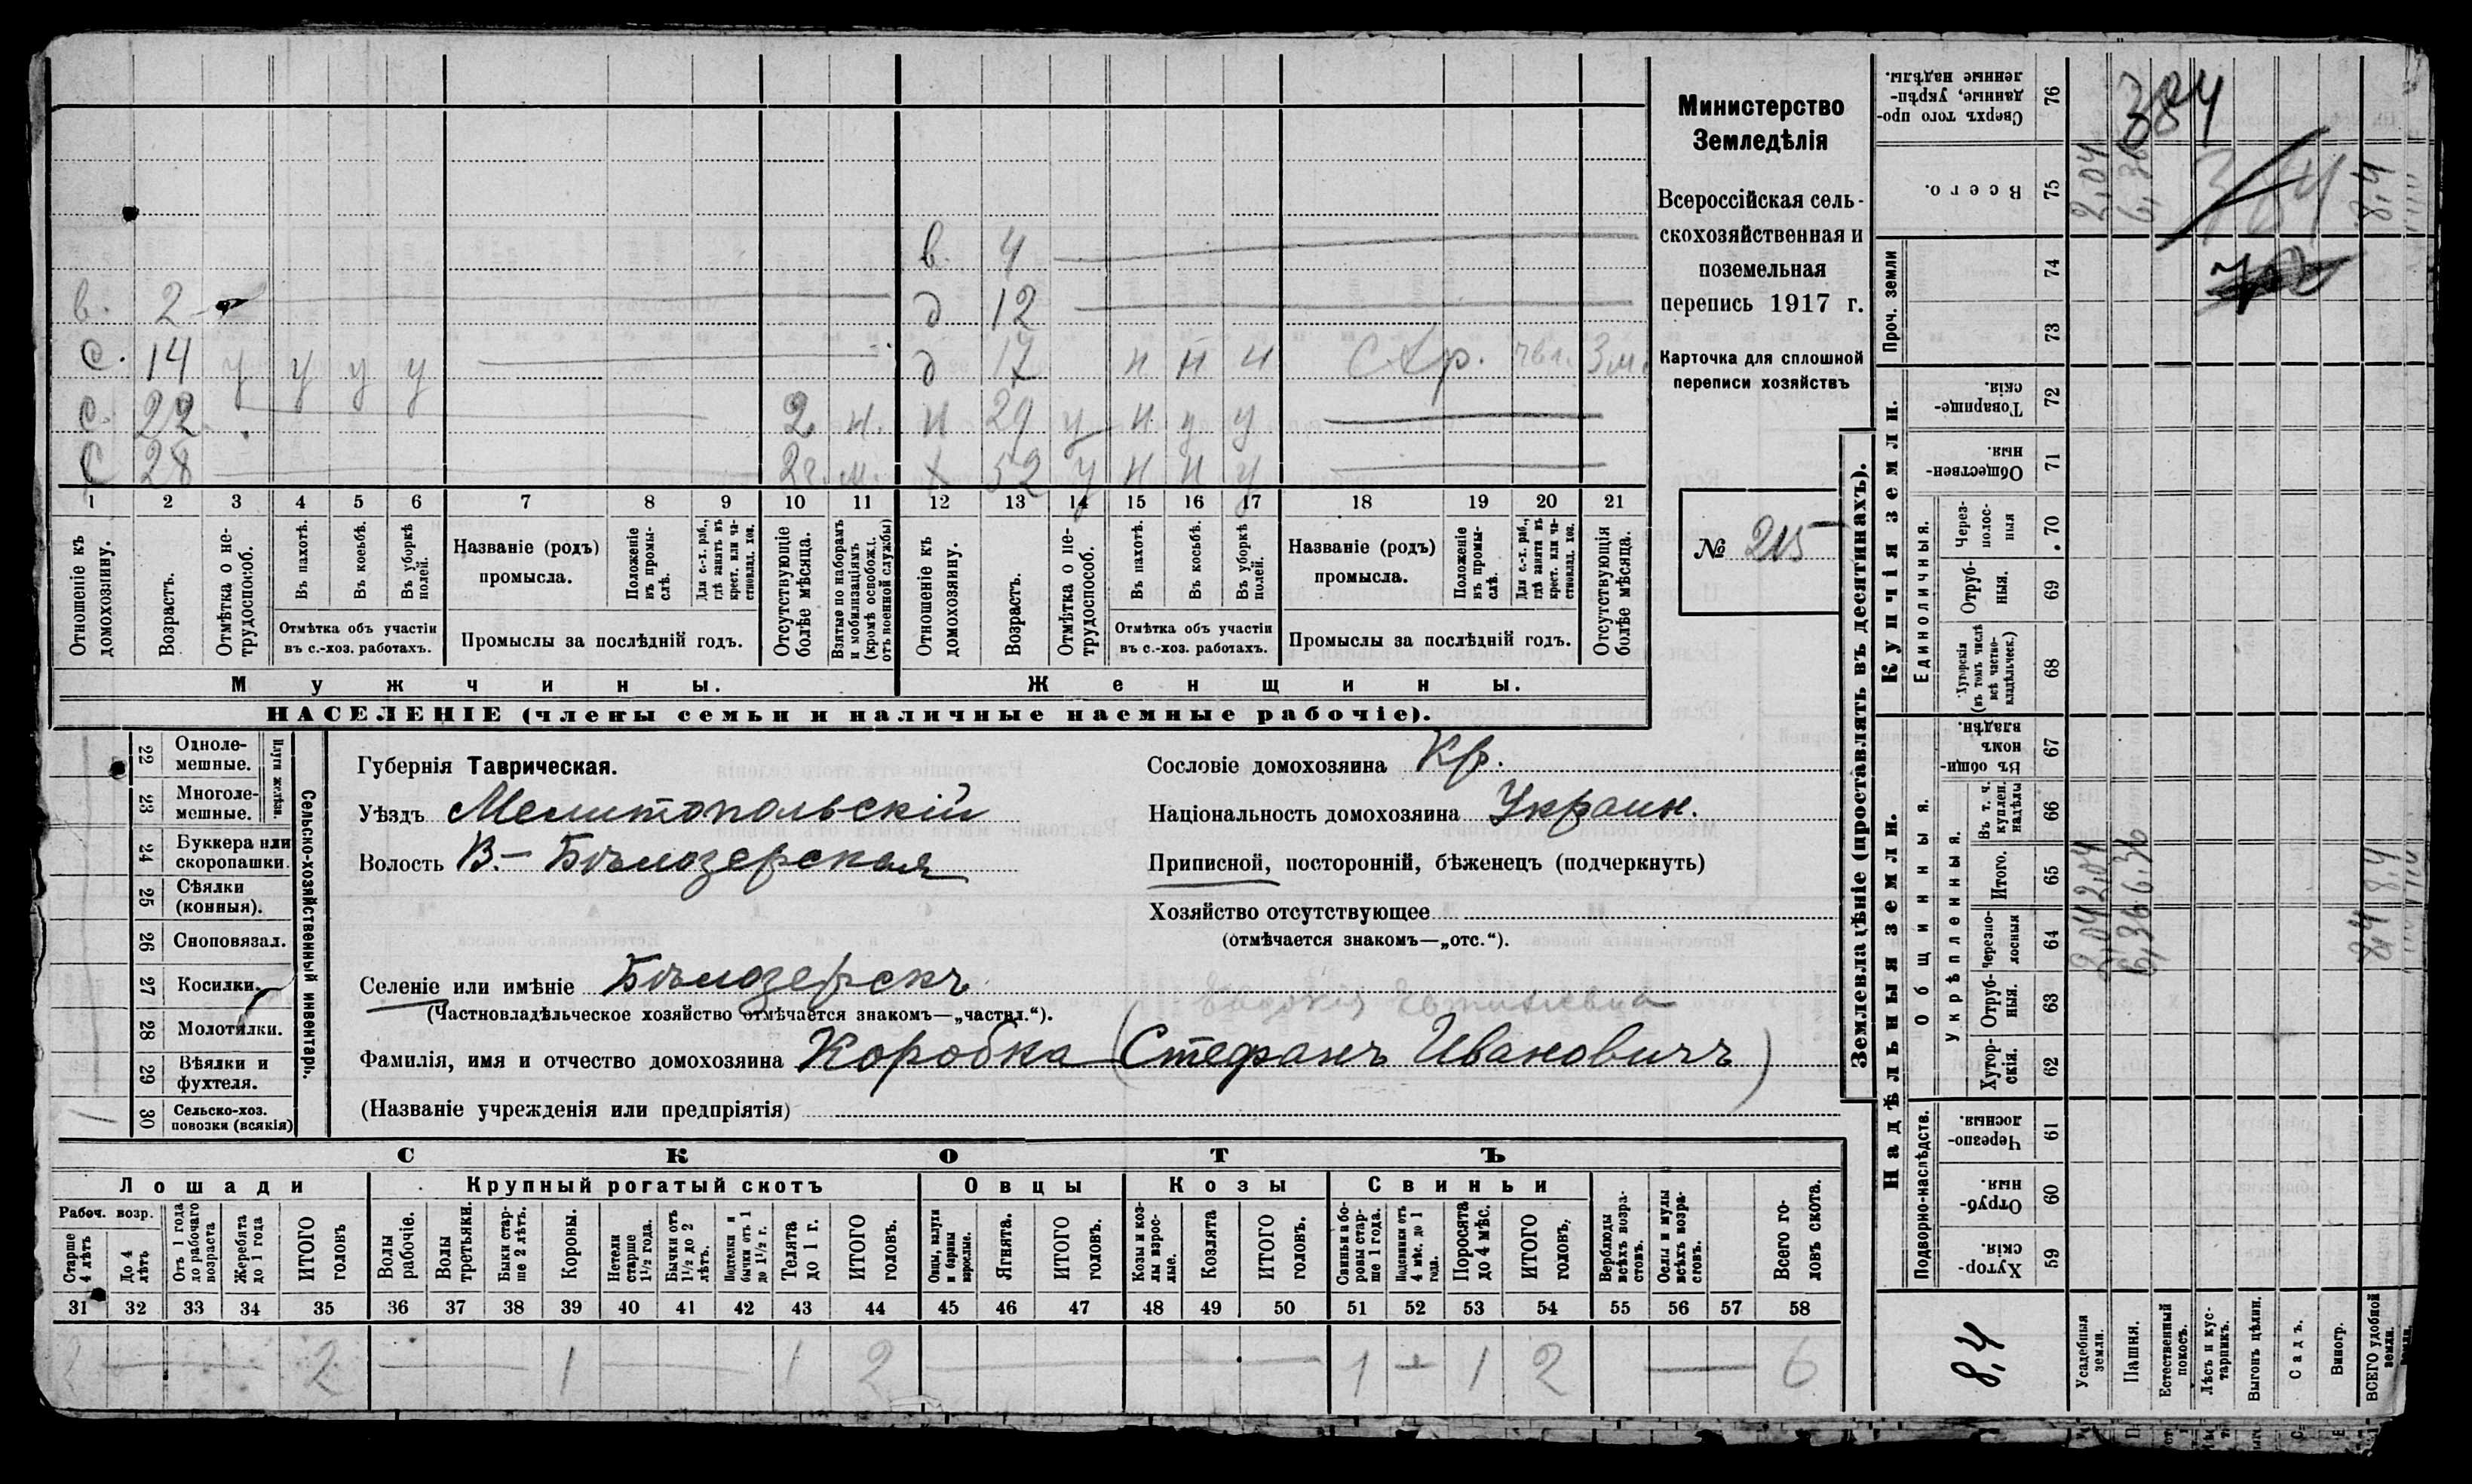 Министерство
Земледѣлія
Всероссійская сель-
скохозяйственная и
поземельная
перепись 1917 г.
Карточка для сплошной
переписи хозяйствъ
№ 215
в 4
в. 2 д 12
с. 14 у у у у д 17 н н н 3 м.
с. 22 2 н. н 29 у н у у
с 28 2 г. м. х 52 у н н у
1 2 3 4 5 6 7 8 9 10 11 12 13 14 15 16 17 18 19 20 21
Отношеніе къ домохозяину.
Возрастъ.
Отмѣтка о не-трудоспособ.
Въ пахотѣ.
Въ косьбѣ.
Въ уборкѣ полей.
Отмѣтка объ участіи
въ с.-хоз. работахъ.
Названіе (родъ)
промысла.
Положеніе въ промы-слѣ.
Для с.-х. раб., гдѣ занятъ въ крест. или ча-стновлад. хоз.
Промыслы за послѣдній годъ.
Отсутствующіе болѣе мѣсяца.
Взятые по наборамъ и мобилизаціямъ (кромѣ освобожд. отъ военной службы)
Отношеніе къ домохозяину.
Возрастъ.
Отмѣтка о не-трудоспособ.
Въ пахотѣ.
Въ косьбѣ.
Въ уборкѣ полей.
Отмѣтка объ участіи
въ с.-хоз. работахъ.
Названіе (родъ)
промысла.
Положеніе въ промы-слѣ.
Для с.-х. раб., гдѣ заняты въ крест. или ча-стновлад. хоз.
Промыслы за послѣдній годъ.
Отсутствующія болѣе мѣсяца.
Мужчины. Женщины.
НАСЕЛЕНІЕ (члены семьи и наличные наемные рабочіе).
Сельско-хозяйственный инвентарь.
Плуги желѣзн.
22 Одноле-мешные.
23 Многоле-мешные.
24 Буккера или скоропашки.
25 Сѣялки (конныя).
26 Сноповязал.
27 Косилки.
28 Молотилки.
29 Вѣялки и фухтеля.
30 Сельско-хоз. повозки (всякія)
1
Губернія Таврическая.
Уѣздъ Мелитопольскій
Волость В.-Бѣлозерская
Селеніе или имѣніе Бѣлозерскъ
(Частновладѣльческое хозяйство отмѣчается знакомъ—„частвл.“).
Фамилія, имя и отчество домохозяина Коробка (Стефанъ Ивановичъ)
(Названіе учрежденія или предпріятія)
Сословіе домохозяина Кр.
Національность домохозяина Украин.
Приписной, посторонній, бѣженецъ (подчеркнуть)
Хозяйство отсутствующее
(отмѣчается знакомъ—„отс.“).
СКОТЪ
Лошади Крупный рогатый скотъ Овцы Козы Свиньи
Рабоч. возр.
Старше 4 лѣтъ
До 4 лѣтъ
Отъ 1 года до рабочаго возраста
Жеребята до 1 года
ИТОГО головъ
Волы рабочіе.
Волы третьяки.
Быки стар-ше 2 лѣтъ.
Коровы.
Нетели старше 1½ года.
Бычки отъ 1½ до 2 лѣтъ.
Подтелки и бычки отъ 1 до 1½ г.
Телята до 1 г.
ИТОГО головъ.
Овцы, валухи и бараны взрослые.
Ягнята.
ИТОГО головъ.
Козы и коз-лы взрос-лые.
Козлята
ИТОГО головъ.
Свиньи и бо-ровы стар-ше 1 года.
Подсвинки отъ 4 мѣс. до 1 года.
Поросята до 4 мѣс.
ИТОГО головъ.
Верблюды всѣхъ возра-стовъ.
Ослы и мулы всѣхъ возра-стовъ.
Всего го-ловъ скота.
31 32 33 34 35 36 37 38 39 40 41 42 43 44 45 46 47 48 49 50 51 52 53 54 55 56 57 58
2 — 2 — 1 — 1 2 — 1 — 1 2 — 6
Землевладѣніе (проставлять въ десятинахъ).
Надѣльныя земли. Купчія земли. Проч. земли
Подворно-наслѣдств.
Общинныя.
Укрѣпленныя.
Единоличныя.
59 Хутор-скія.
60 Отруб-ныя.
61 Черезпо-лосныя
62 Хутор-скія.
63 Отруб-ныя.
64 Черезпо-лосныя
65 Итого.
66 Въ т. ч. куплен. надѣлы
67 Въ общи-номъ владѣн.
68 Хуторскія (въ томъ числѣ всѣ частно-владѣльческ.)
69 Отруб-ныя.
70 Через-полос-ныя
71 Обществен-ныя.
72 Товарище-скія.
73
74
75 Всего.
76 Сверхъ того про-данные, укрѣп-ленные надѣлы.
8,4
Усадебныя земли. 2,04 2,04 2,04
Пашня. 6,36 6,36 6,36
Естественный покосъ.
Лѣсъ и кус-тарникъ.
Выгонъ цѣлин.
Садъ.
Виногр.
ВСЕГО удобной земли. 8,4 8,4 8,4
384
384